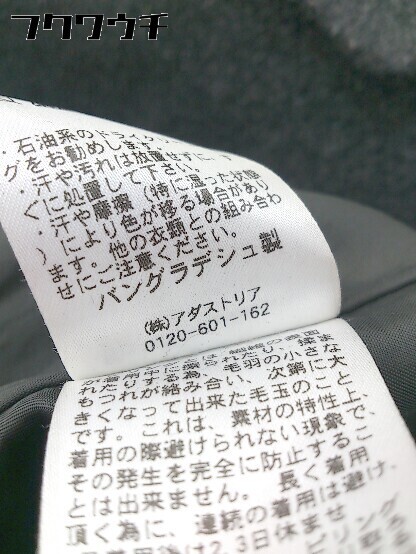 フクワウチ
・石油系のドライクリーニン
グをお勧めします。
・汗や汚れは放置せずに、す
ぐに処置して下さい。
・汗や摩擦(特に湿った状態
)により色が移る場合があり
ます。他の衣類との組み合わ
せにご注意ください。
バングラデシュ製
(株)アダストリア
0120-601-162
は繊維の表面
が着用中に擦られたり、揉ま
れたりする為、毛羽の小さな
もつれが絡み合い、次第に大
きくなって出来た毛玉のこと
です。これは、素材の特性上、
着用の際避けられない現象で、
その発生を完全に防止するこ
とは出来ません。長く着用
頂く為に、連続の着用は避け、
着用後は2、3日休ませ
ピリング